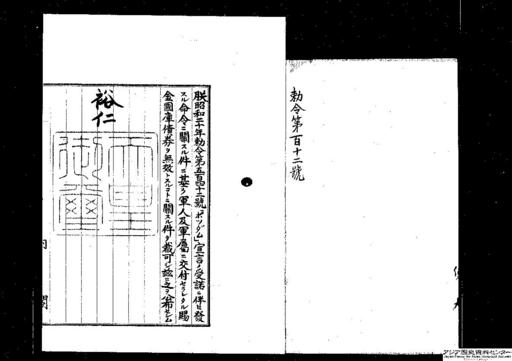 勅令第百十二號
朕昭和二十年勅令第五百四十二號「ポツダム」宣言ノ受諾ニ伴ヒ發
スル命令ニ關スル件ニ基ク軍人及軍屬ニ交付セラレタル賜
金國庫債券ヲ無效トスルコトニ關スル件ヲ裁可シ茲ニ之ヲ公布セシム
裕仁
天皇御璽
内閣
アジア歴史資料センター